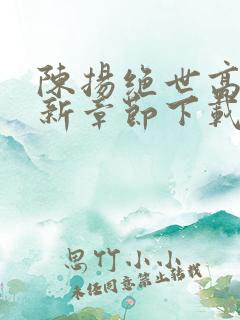 陳揚絕世高
新章節下載
思竹小小
未經同意禁止轉載